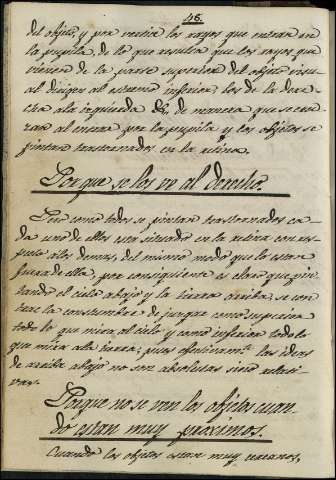 46.
del objeto, y por venir los rayos que entran en
la pupila, de lo que resulta que los rayos que
vienen de la parte superior del objeto van
al dirigen al estremo inferior, los de la dere-
cha ala izquierda &c, de manera que se cru-
zan al entrar por la pupila y los objetos se
pintan trastornados en la retina.
Por que se los ve al derecho.
Pero como todos se pintan trastornados ca-
da uno de ellos esta situado en la retina con res-
pecto alos demas, del mismo modo que lo estan
fuera de ella, por consiguiente es claro que pin-
tandose el cielo abajo y la tierra arriba, se con-
trae la costumbre de juzgar como superior
todo lo que mira al cielo y como inferior todo lo
que mira ala tierra; pues efectivamte. las ideas
de arriba abajo no son absolutas sino relati-
vas.
Porque no se ven los objetos cuan-
do estan muy próximos.
Cuando los objetos estan muy cercanos,